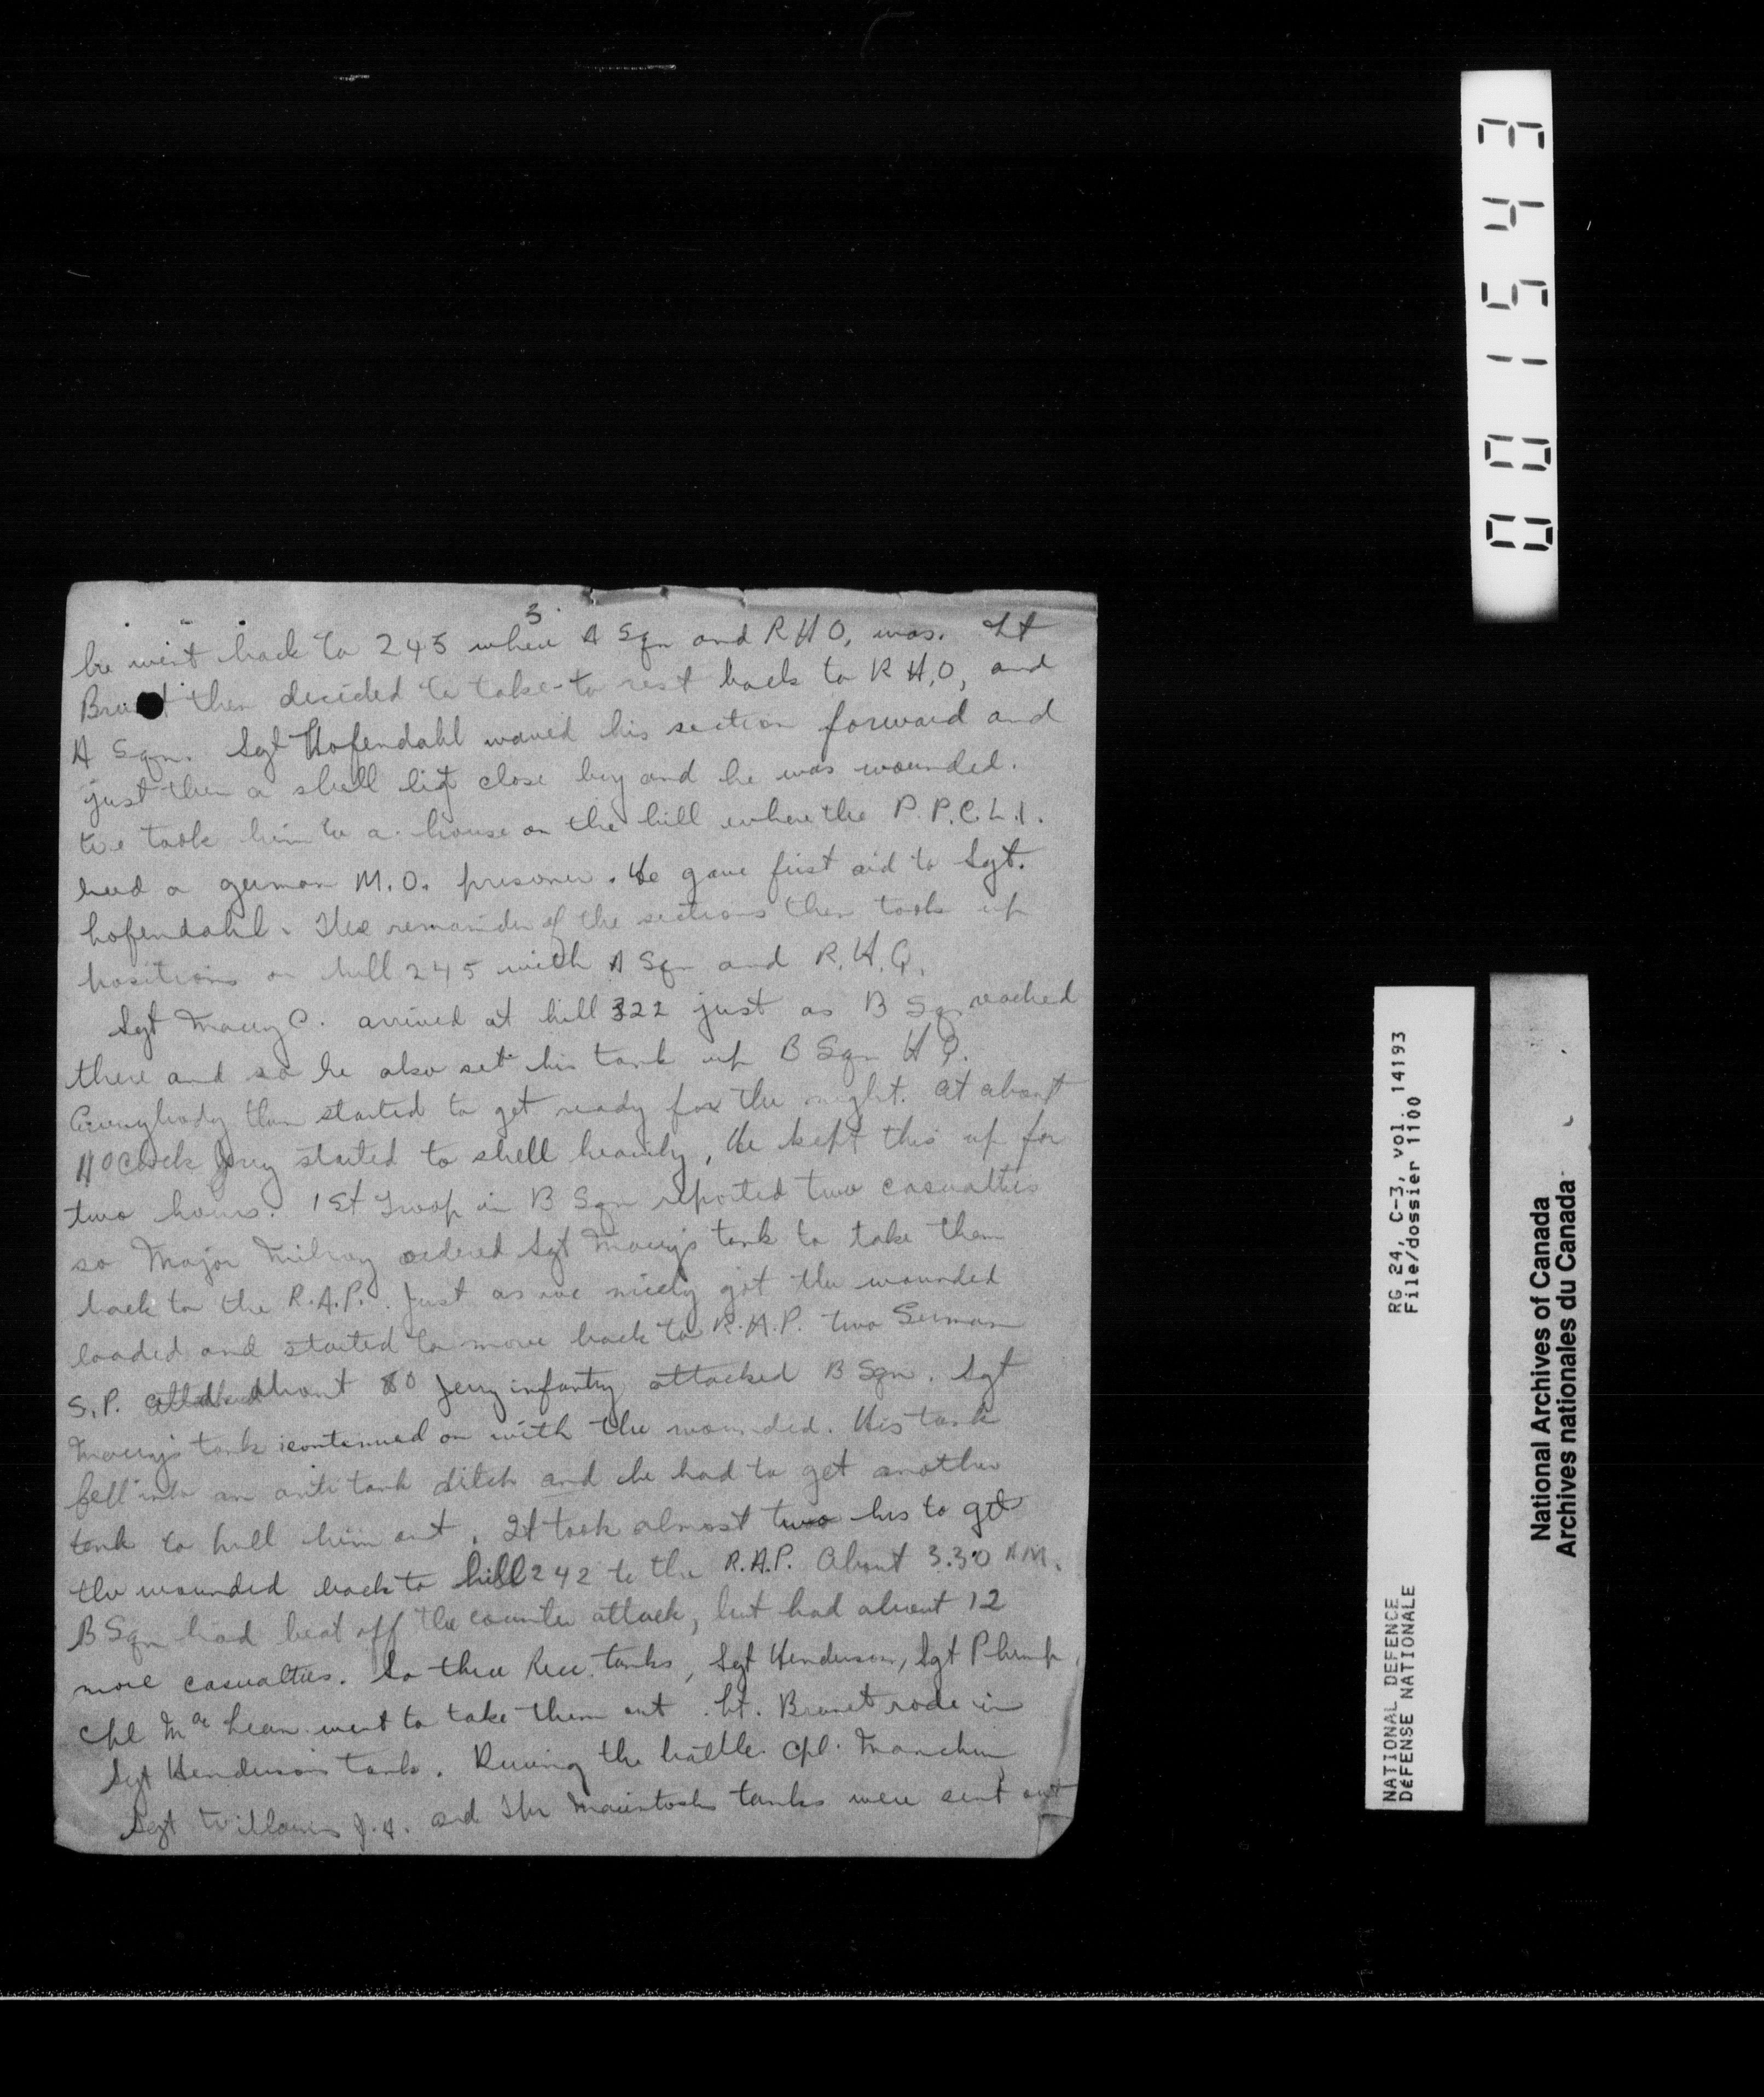 3.
he went back to 245 where A Sqn and R H Q, was. Lt
Bru t then decided to take to rest back to R H.Q, and
A Sqn. Sgt Hofendahl waved his section forward and
just then a shell lit close by and he was wounded.
We took him to a house on the hill where the P.P.C.L.I.
had a german M.O. prisoner. He gave first aid to Sgt.
hofendahl. The remainder of the sections then took up
positions on hill 245 with A Sqn and R.H.Q.
Sgt Macey C. arrived at hill 322 just as B Sqn reached
there and so he also set his tank up B Sqn H Q.
Everybody then started to get ready for the night. at about
oclock Jerry started to shell heavily, He kept this up for
two hours. 1st Troop in B Sqn reported two casualties
so Major Milroy ordered Sgt Macey's tank to take them
back to the R.A.P. Just as we nicely got the wounded
loaded and started to move back to R.A.P. two German
S.P. about 80 Jerry infantry attacked B Sqn. Sgt
Macey's tank continued on with the wounded. His tank
fell into an anti tank ditch and he had to get another
tank to pull him out. It took almost two hrs to get
the wounded back to hill 242 to the R.A.P. About 3.30 A.M.
B Sqn had beat off the counter attack, but had about 12
more casualties. So three Rece. tanks, Sgt Henderson, Sgt Phimp,
Cpl Mac Lean went to take them out. Lt. Brunet rode in
Sgt Henderson's tank. During the battle Cpl.
Sgt Williams J.A. and Macintosh tanks were sent out
001543
RG 24, C-3, vol. 14193
File/dossier 1100
NATIONAL DEFENCE
DéFENSE NATIONALE
National Archives of Canada
Archives nationales du Canada